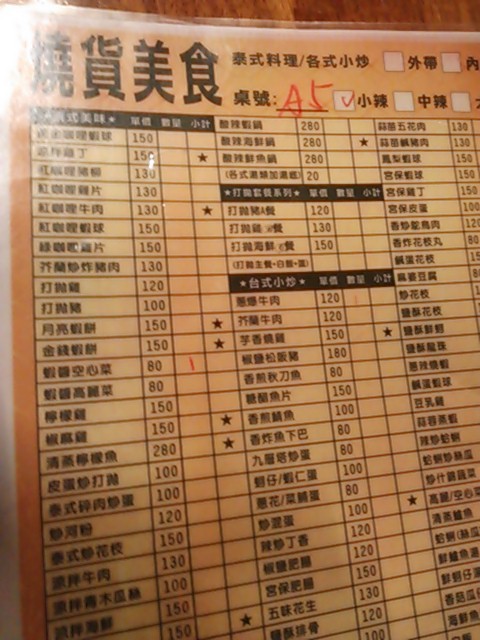 燒貨美食
泰式料理/各式小炒 外帶 內
桌號: A5 小辣 中辣
式美味★ 單價 數量 小計
黃金咖哩蝦球 150
涼拌雞丁 150
紅咖哩豬柳 130
紅咖哩雞片 130
紅咖哩牛肉 130
紅咖哩蝦球 150
綠咖哩雞片 150
芥蘭炒炸豬肉 130
打拋雞 120
打拋豬 100
月亮蝦餅 150
金錢蝦餅 150
蝦醬空心菜 80 1
蝦醬高麗菜 80
檸檬雞 150
椒麻雞 150
清蒸檸檬魚 280
皮蛋炒打拋 100
泰式碎肉炒蛋 100
炒河粉 120
泰式炒花枝 150
涼拌牛肉 130
涼拌青木瓜絲 100
涼拌海鮮 150
酸辣蝦鍋 280
★ 酸辣海鮮鍋 280
酸辣鮮魚鍋 280
(各式湯類加湯底) 20
★打拋套餐系列★ 單價 數量 小計
打拋豬A餐 120
打拋雞 餐 130
打拋海鮮 餐 150
(打拋主餐+白飯+蛋)
★台式小炒★ 單價 數量 小計
★ 蔥爆牛肉 120
★ 芥蘭牛肉 120
芋香燒雞 150
椒鹽松阪豬 180
香煎秋刀魚 80
★ 糖醋魚片 150
★ 香煎鯖魚 100
香炸魚下巴 80
九層塔炒蛋 80
蚵仔/蝦仁蛋 100
蔥花/菜脯蛋 80
炒混蛋 100
辣炒丁香 120
椒鹽肥腸 150
★ 宮保肥腸 150
五味花生
鹽酥排骨 120
蒜苗五花肉 130
★ 蒜苗鹹豬肉 130
鳳梨蝦球 150
宮保蝦球 150
宮保雞丁
宮保皮蛋 100
香炒鴕鳥肉
香炸花枝丸
鹹蛋花枝
麻婆豆腐
炒花枝
鹽酥花枝
★ 鹽酥鮮蚵
鹽酥龍珠
蔥辣燒蝦
鹹蛋蝦球
豆乳雞
蒜蓉蒸蝦
辣炒蛤蜊
蛤蜊炒絲瓜
炒什錦蔬菜
★ 高麗/空心菜
清蒸鱸魚
蛤蜊(絲瓜
鮮鱸魚湯
鮮蚵仔湯
香菇瓜仔
海鮮魚